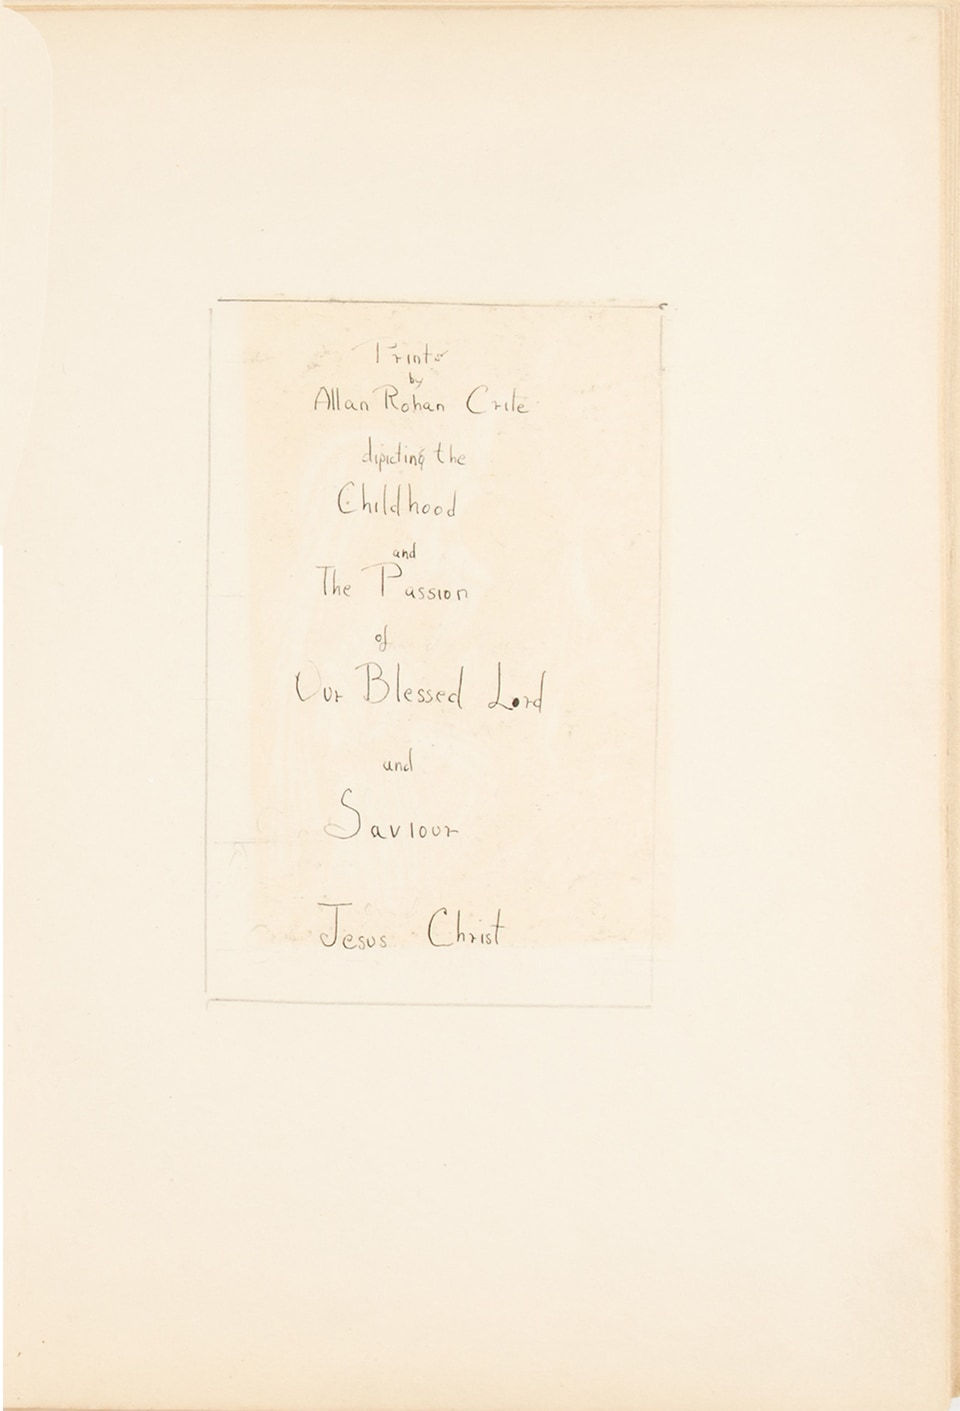 Prints
by
Allan Rohan Crite
dipicting the
Childhood
and
The Passion
of
Our Blessed Lord
and
Saviour
Jesus Christ